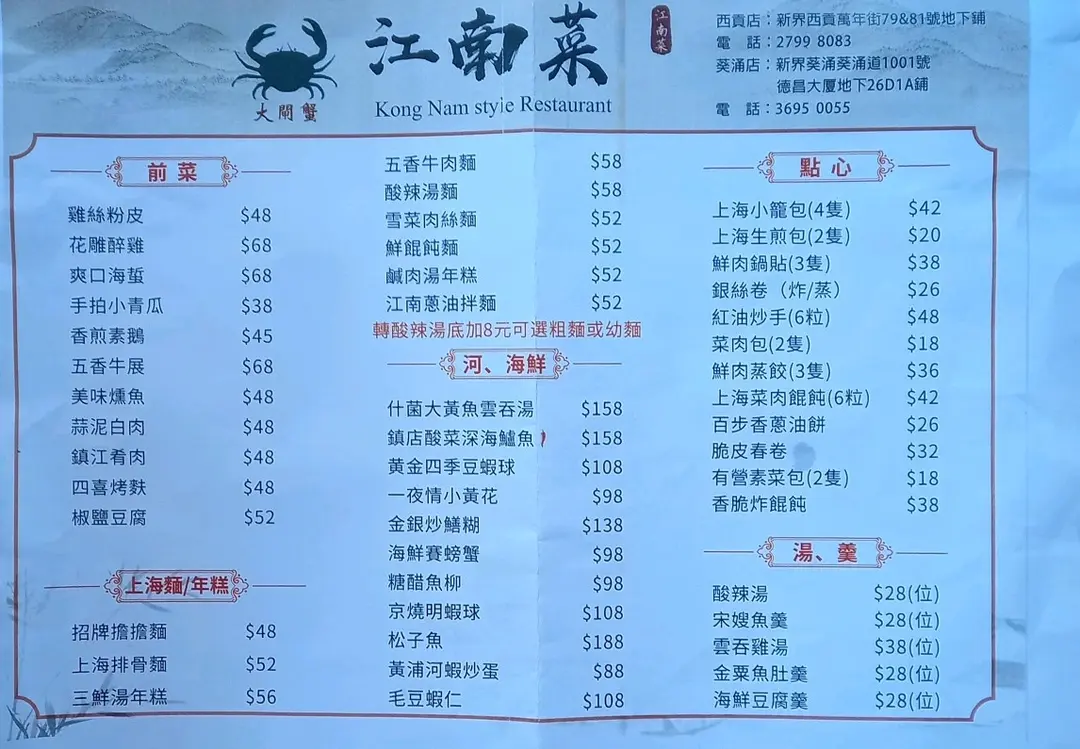 江南菜
江南菜
大閘蟹
Kong Nam style Restaurant
西貢店：新界西貢萬年街79&81號地下鋪
電　話：2799 8083
葵涌店：新界葵涌葵涌道1001號
德昌大厦地下26D1A鋪
電　話：3695 0055
前菜
雞絲粉皮 $48
花雕醉雞 $68
爽口海蜇 $68
手拍小青瓜 $38
香煎素鵝 $45
五香牛展 $68
美味燻魚 $48
蒜泥白肉 $48
鎮江肴肉 $48
四喜烤麩 $48
椒鹽豆腐 $52
上海麵/年糕
招牌擔擔麵 $48
上海排骨麵 $52
三鮮湯年糕 $56
五香牛肉麵 $58
酸辣湯麵 $58
雪菜肉絲麵 $52
鮮餛飩麵 $52
鹹肉湯年糕 $52
江南蔥油拌麵 $52
轉酸辣湯底加8元可選粗麵或幼麵
河、海鮮
什菌大黃魚雲吞湯 $158
鎮店酸菜深海鱸魚 $158
黃金四季豆蝦球 $108
一夜情小黃花 $98
金銀炒鱔糊 $138
海鮮賽螃蟹 $98
糖醋魚柳 $98
京燒明蝦球 $108
松子魚 $188
黃浦河蝦炒蛋 $88
毛豆蝦仁 $108
點心
上海小籠包(4隻) $42
上海生煎包(2隻) $20
鮮肉鍋貼(3隻) $38
銀絲卷（炸/蒸） $26
紅油炒手(6粒) $48
菜肉包(2隻) $18
鮮肉蒸餃(3隻) $36
上海菜肉餛飩(6粒) $42
百步香蔥油餅 $26
脆皮春卷 $32
有營素菜包(2隻) $18
香脆炸餛飩 $38
湯、羹
酸辣湯 $28(位)
宋嫂魚羹 $28(位)
雲吞雞湯 $38(位)
金粟魚肚羹 $28(位)
海鮮豆腐羹 $28(位)